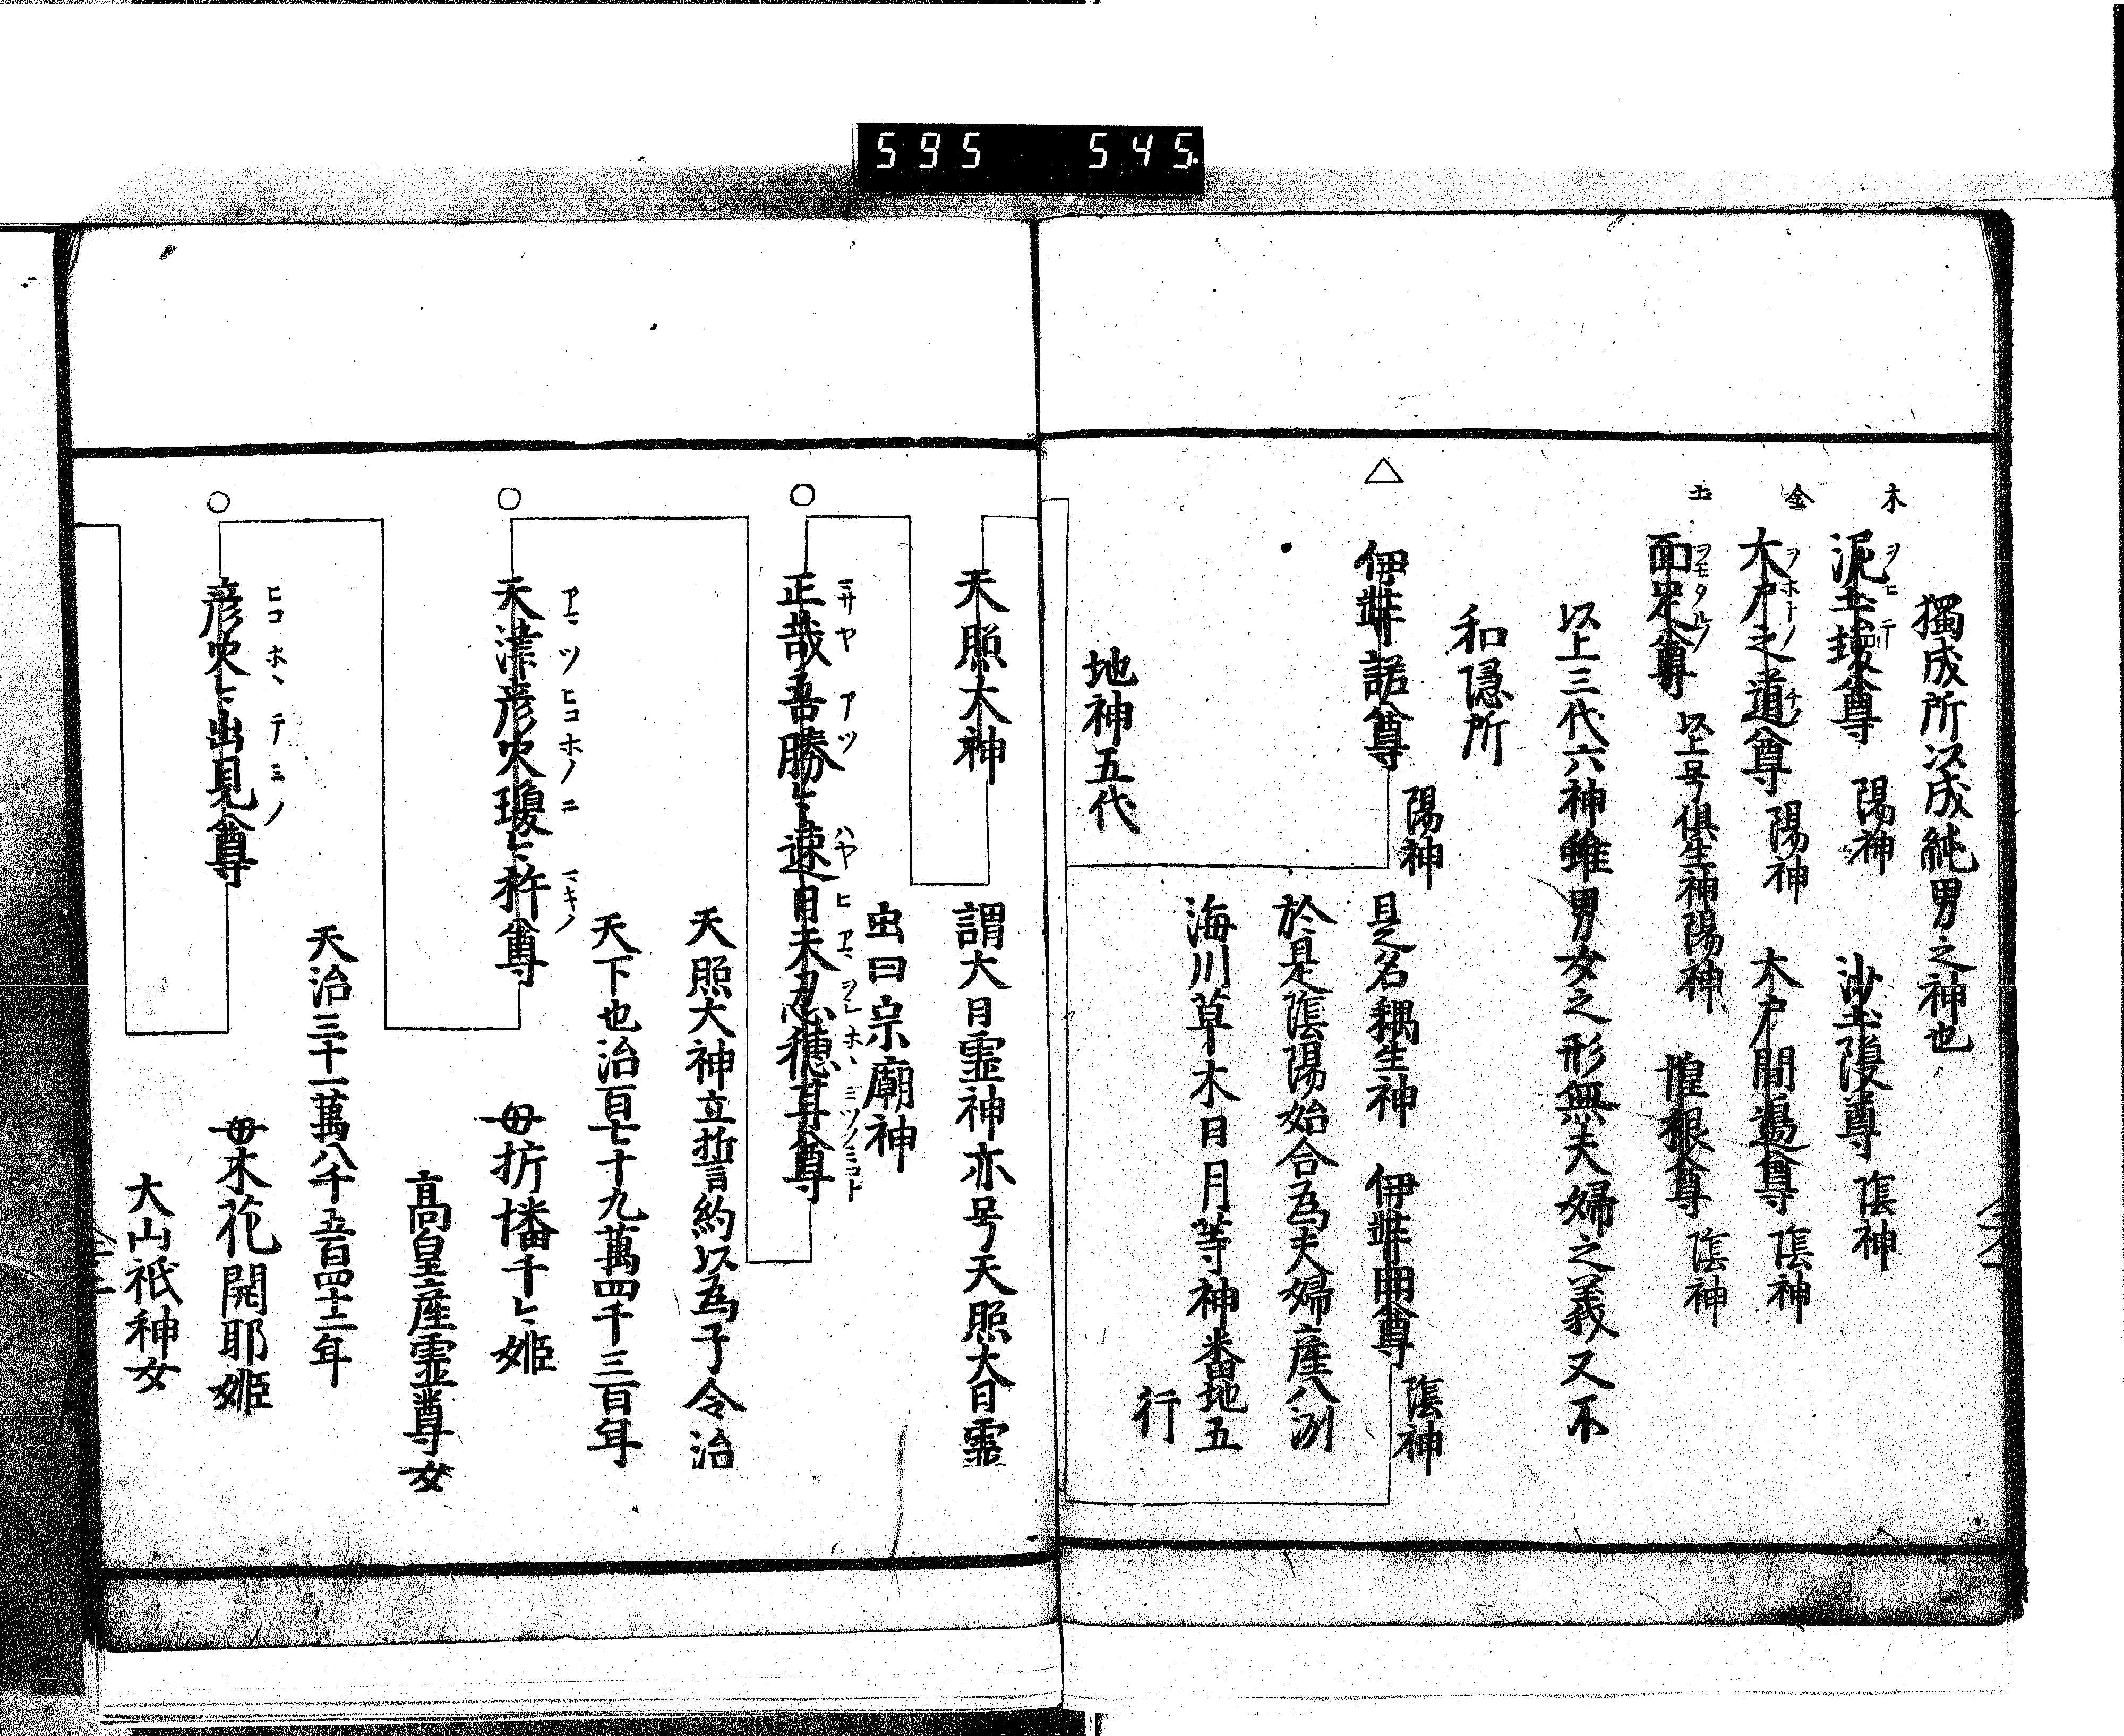 595 545
獨成所以成純男之神也
木
泥土瓊尊 陽神 沙土瓊尊 陰神
金
大戸之道尊 陽神 大戸間邉尊 陰神
土
面足尊 以上号倶生神陽神 惶根尊 陰神
以上三代六神雖男女之形無夫婦之義又不
和隠所
△
伊弉諾尊 陽神 是名耦生神 伊弉冊尊 陰神
於是陰陽始合為夫婦産八洲
海川草木日月等神番地五
行
地神五代
天照大神 謂大日霊神亦号天照大日霊
出曰宗廟神
○
ミサヤ アツ ハヤヒ アマ ヲシホヽミツノミコト
正哉吾勝々速日天忍穂耳尊
天照大神立誓約以為子令治
天下也治百七十九萬四千三百年
○
アマツヒコホノニ マキノ
天津彦火瓊々杵尊 母折幡千々姫
高皇産霊尊女
天治三十一萬八千五百四十二年
○
ヒコホヽテミノ
彦火々出見尊 母木花開耶姫
大山祇神女